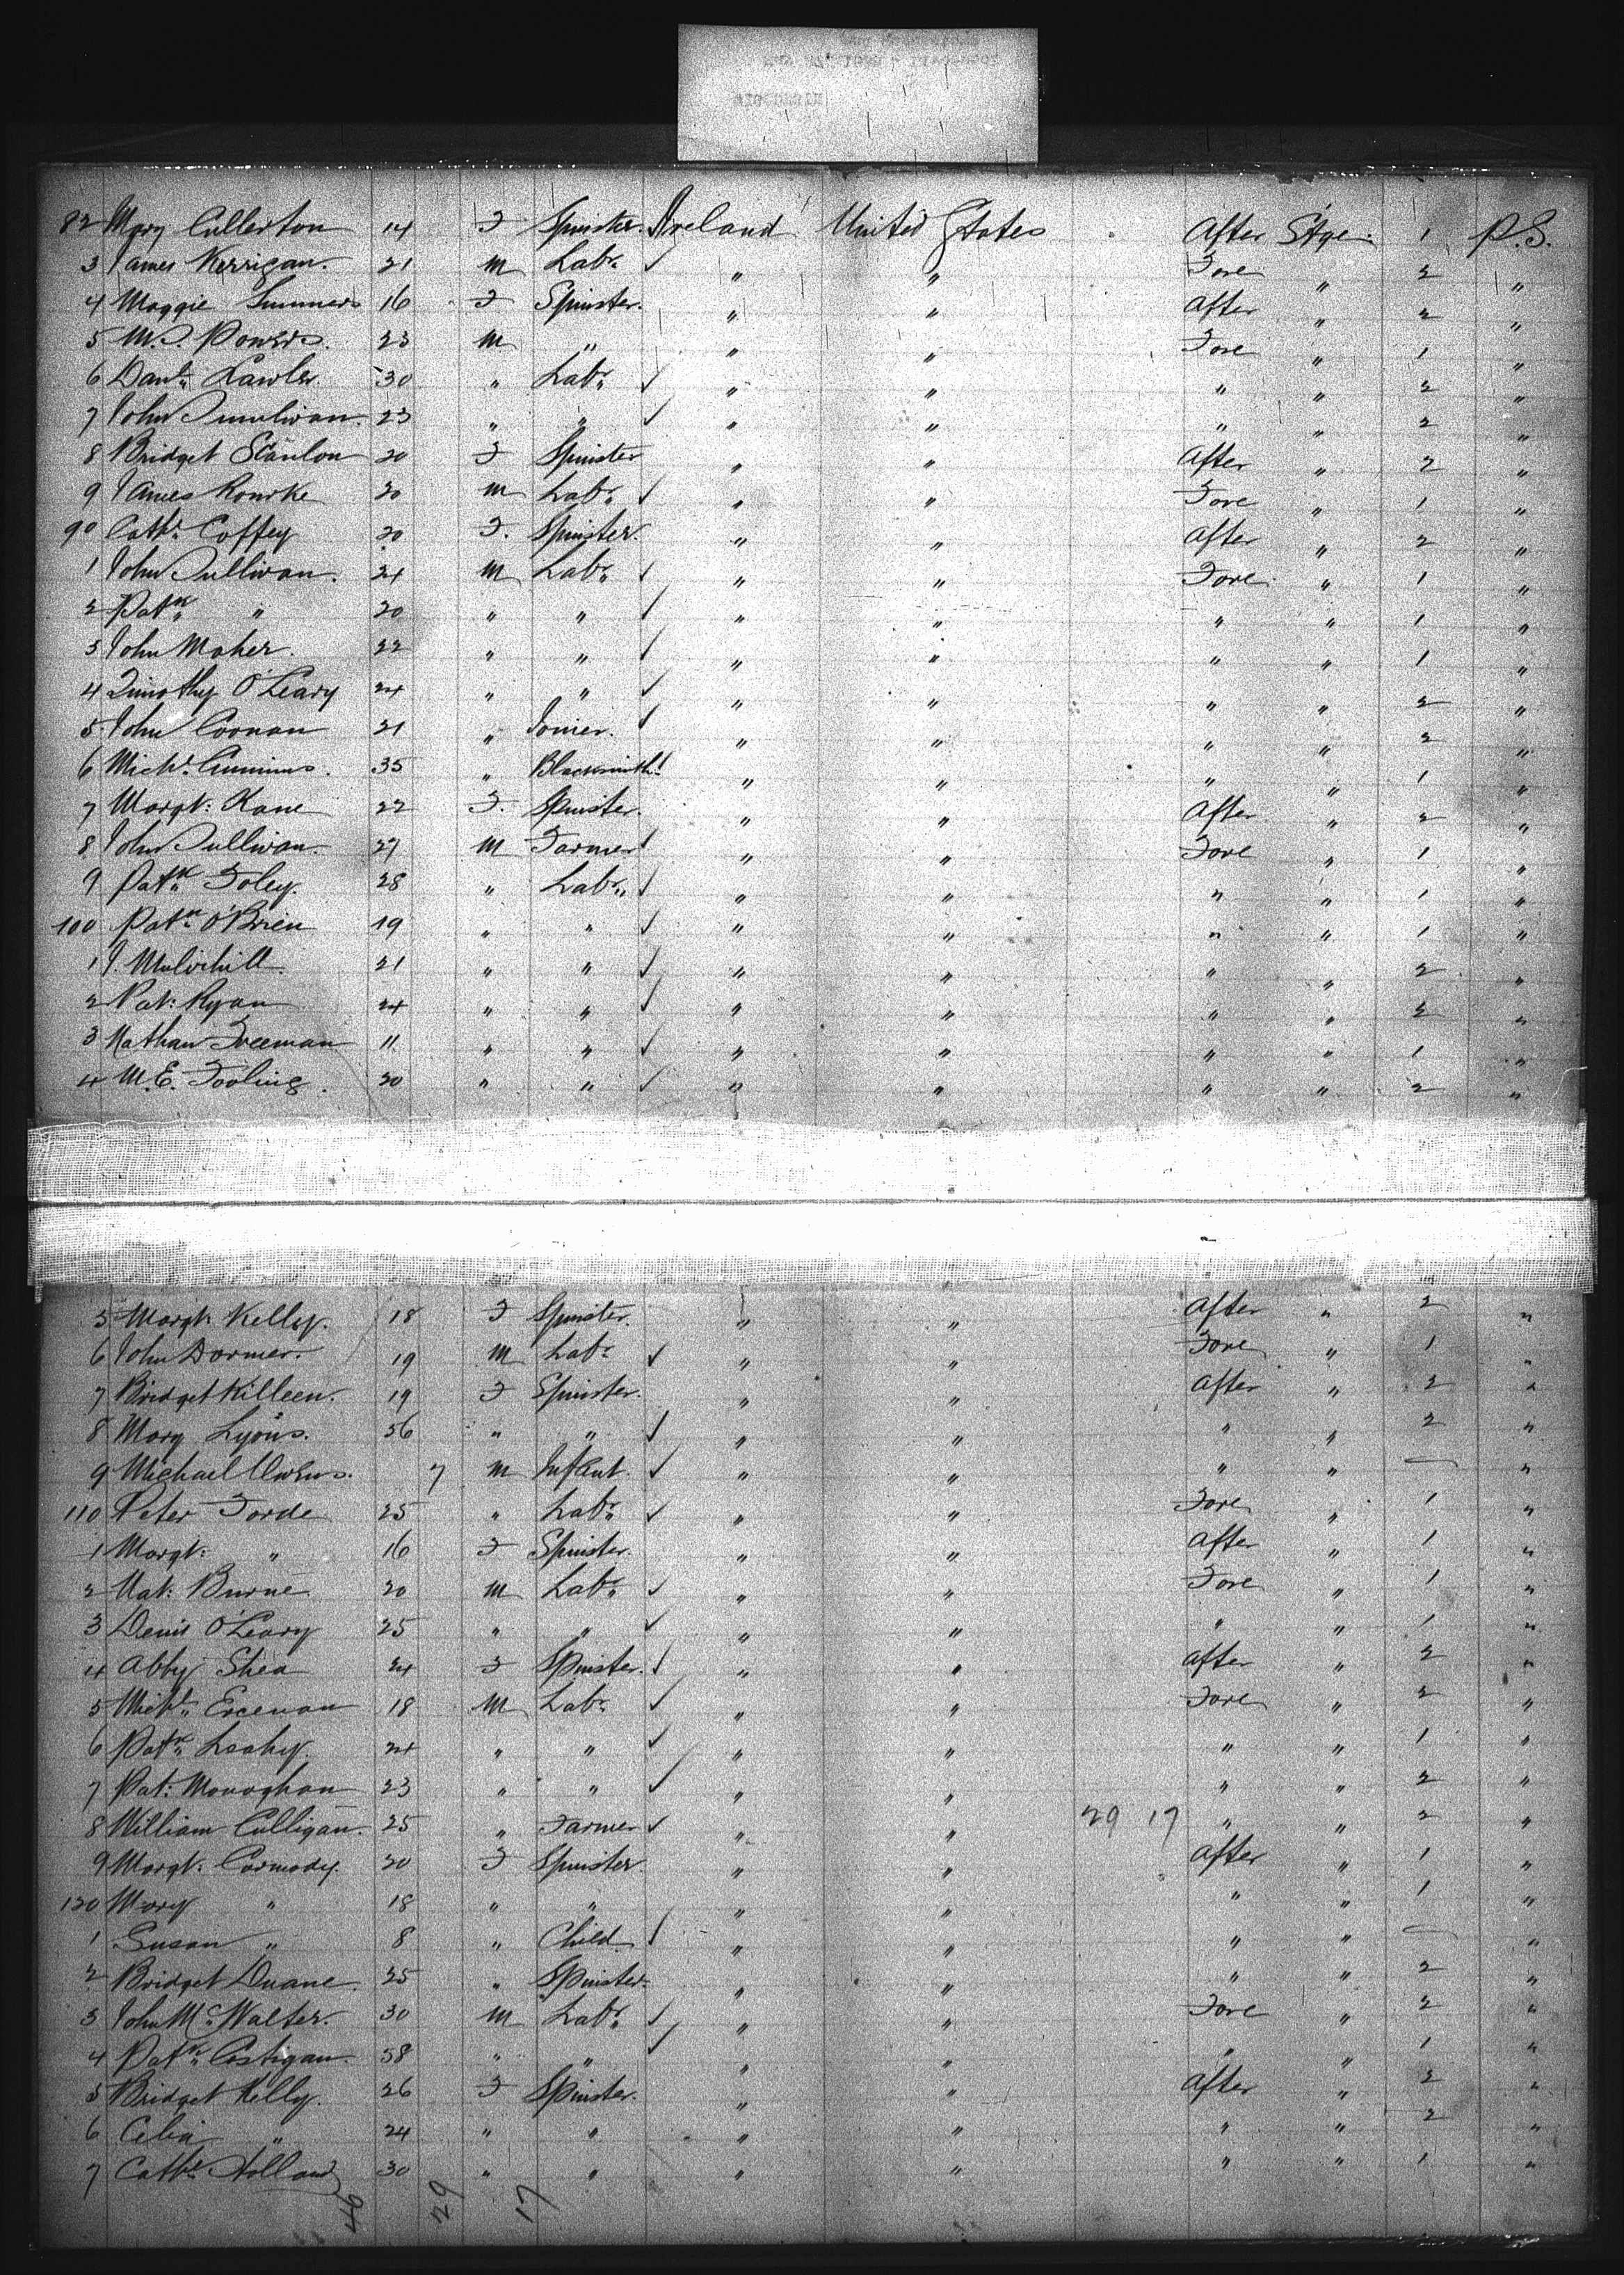 82 Mary Cullerton 14 F Spinster Ireland United States After Stge: 1 P.S.
3 James Kerrigan. 21 M Labr. ✓ " " Fore " 2 "
4 Maggie Summers 16 F Spinster. " " After " 2 "
5 M.J. Powers. 23 M " " " Fore " 1 "
6 Danl. Lawler 30 " Labr. ✓ " " " " 2 "
7 John 23 " " ✓ " " " " 2 "
8 Bridget Scanlon 20 F Spinster " " After " 2 "
9 James Rourke 20 M Labr. ✓ " " Fore " 1 "
90 Cathe. Coffey 20 F. Spinster. " " After " 2 "
1 John Sullivan. 24 M Labr. ✓ " " Fore. " 1 "
2 Patk. " 20 " " ✓ " " " " 1 "
3 John Maher. 22 " " ✓ " " " " 1 "
4 Timothy O'Leary 24 " " ✓ " " " " 2 "
5 John Coonan 21 " Joiner. ✓ " " " " 2 "
6 Michl. Cummins. 35 " Blacksmith ✓ " " " " 1 "
7 Margt: Kane 22 F. Spinster. " " After " 2 "
8 John Sullivan. 27 M Farmer ✓ " " Fore " 1 "
9 Patk. Foley. 28 " Labr. ✓ " " " " 1 "
100 Patk. O'Brien 19 " " ✓ " " " " 1 "
1 J. Mulvihill. 21 " " ✓ " " " " 2 "
2 Pat: Ryan 24 " " ✓ " " " " 2 "
3 Nathan Freeman 11 " " ✓ " " " " 1 "
4 M.E. Fooling. 20 " " ✓ " " " " 2 "
5 Margt. Kelly. 18 F Spinster. " " After " 2 "
6 John Dormer. 19 M Labr. ✓ " " Fore " 1 "
7 Bridget Killeen. 19 F Spinster. " " After " 2 "
8 Mary Lyons. 56 " " ✓ " " " " 2 "
9 Michael Owens. 7 M Infant. ✓ " " " " — "
110 Peter Forde 25 " Labr. ✓ " " Fore " 1 "
1 Margt: " 16 F Spinster. " " After " 1 "
2 Nat: Burne 20 M Labr. ✓ " " Fore " 1 "
3 Denis O'Leary 25 " " ✓ " " " " 1 "
4 Abby Shea 24 F Spinster. ✓ " " After " 2 "
5 Michl. 18 M Labr. ✓ " " Fore " 2 "
6 Patk. Leahy. 24 " " ✓ " " " " 1 "
7 Pat: Monaghan 23 " " ✓ " " " " 2 "
8 William Culligan. 25 " Farmer ✓ " " 29 17 " " 2 "
9 Margt. Cormody. 20 F Spinster " " After " 1 "
120 Mary " 18 " " " " " " 1 "
1 Susan " 8 " Child. ✓ " " " " — "
2 Bridget Duane. 25 " Spinster. " " " " 2 "
3 John McWalter. 30 M Labr. ✓ " " Fore " 2 "
4 Patk. Costigan. 38 " " ✓ " " " " 1 "
5 Bridget Kelly. 26 F Spinster. " " After " 2 "
6 Celia " 24 " " " " " " 2 "
7 Cathe. Holland 30 " " " " " " 1 "
46 29 17